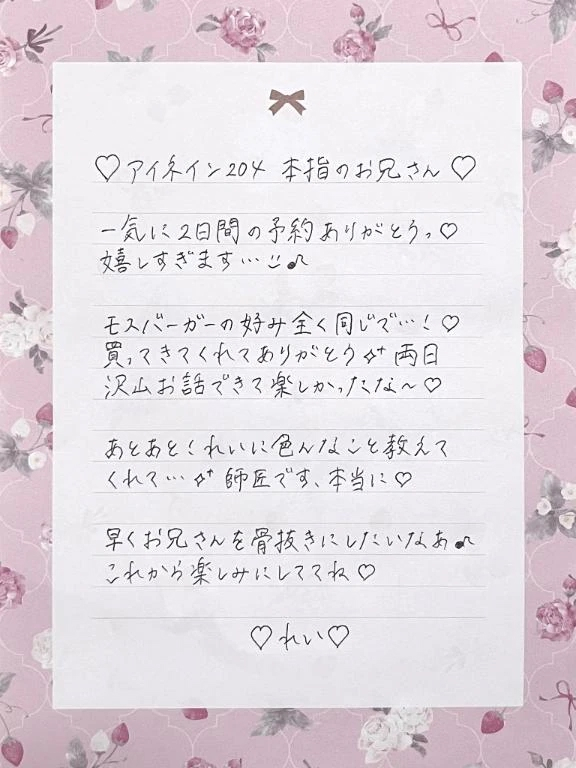 ♡アイネイン204 本指のお兄さん♡
一気に2日間の予約ありがとうっ♡
嬉しすぎます…♫
モスバーガーの好み全く同じで…！♡
買ってきてくれてありがとう 両日
沢山お話できて楽しかったな〜♡
あとあと！れいに色んなこと教えて
くれて… 師匠です、本当に♡
早くお兄さんを骨抜きにしたいなあ♫
これから楽しみにしててね♡
♡れい♡